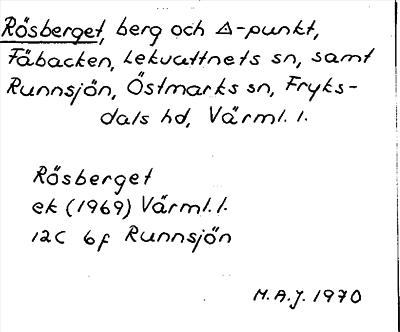 Rösberget, berg och Δ-punkt,
Fäbacken, Lekvattnets sn, samt
Runnsjön, Östmarks sn, Fryks-
dals hd, Värml. l.
Rösberget
ek (1969) Värml. l.
12C 6f Runnsjön
M.A.J. 1970